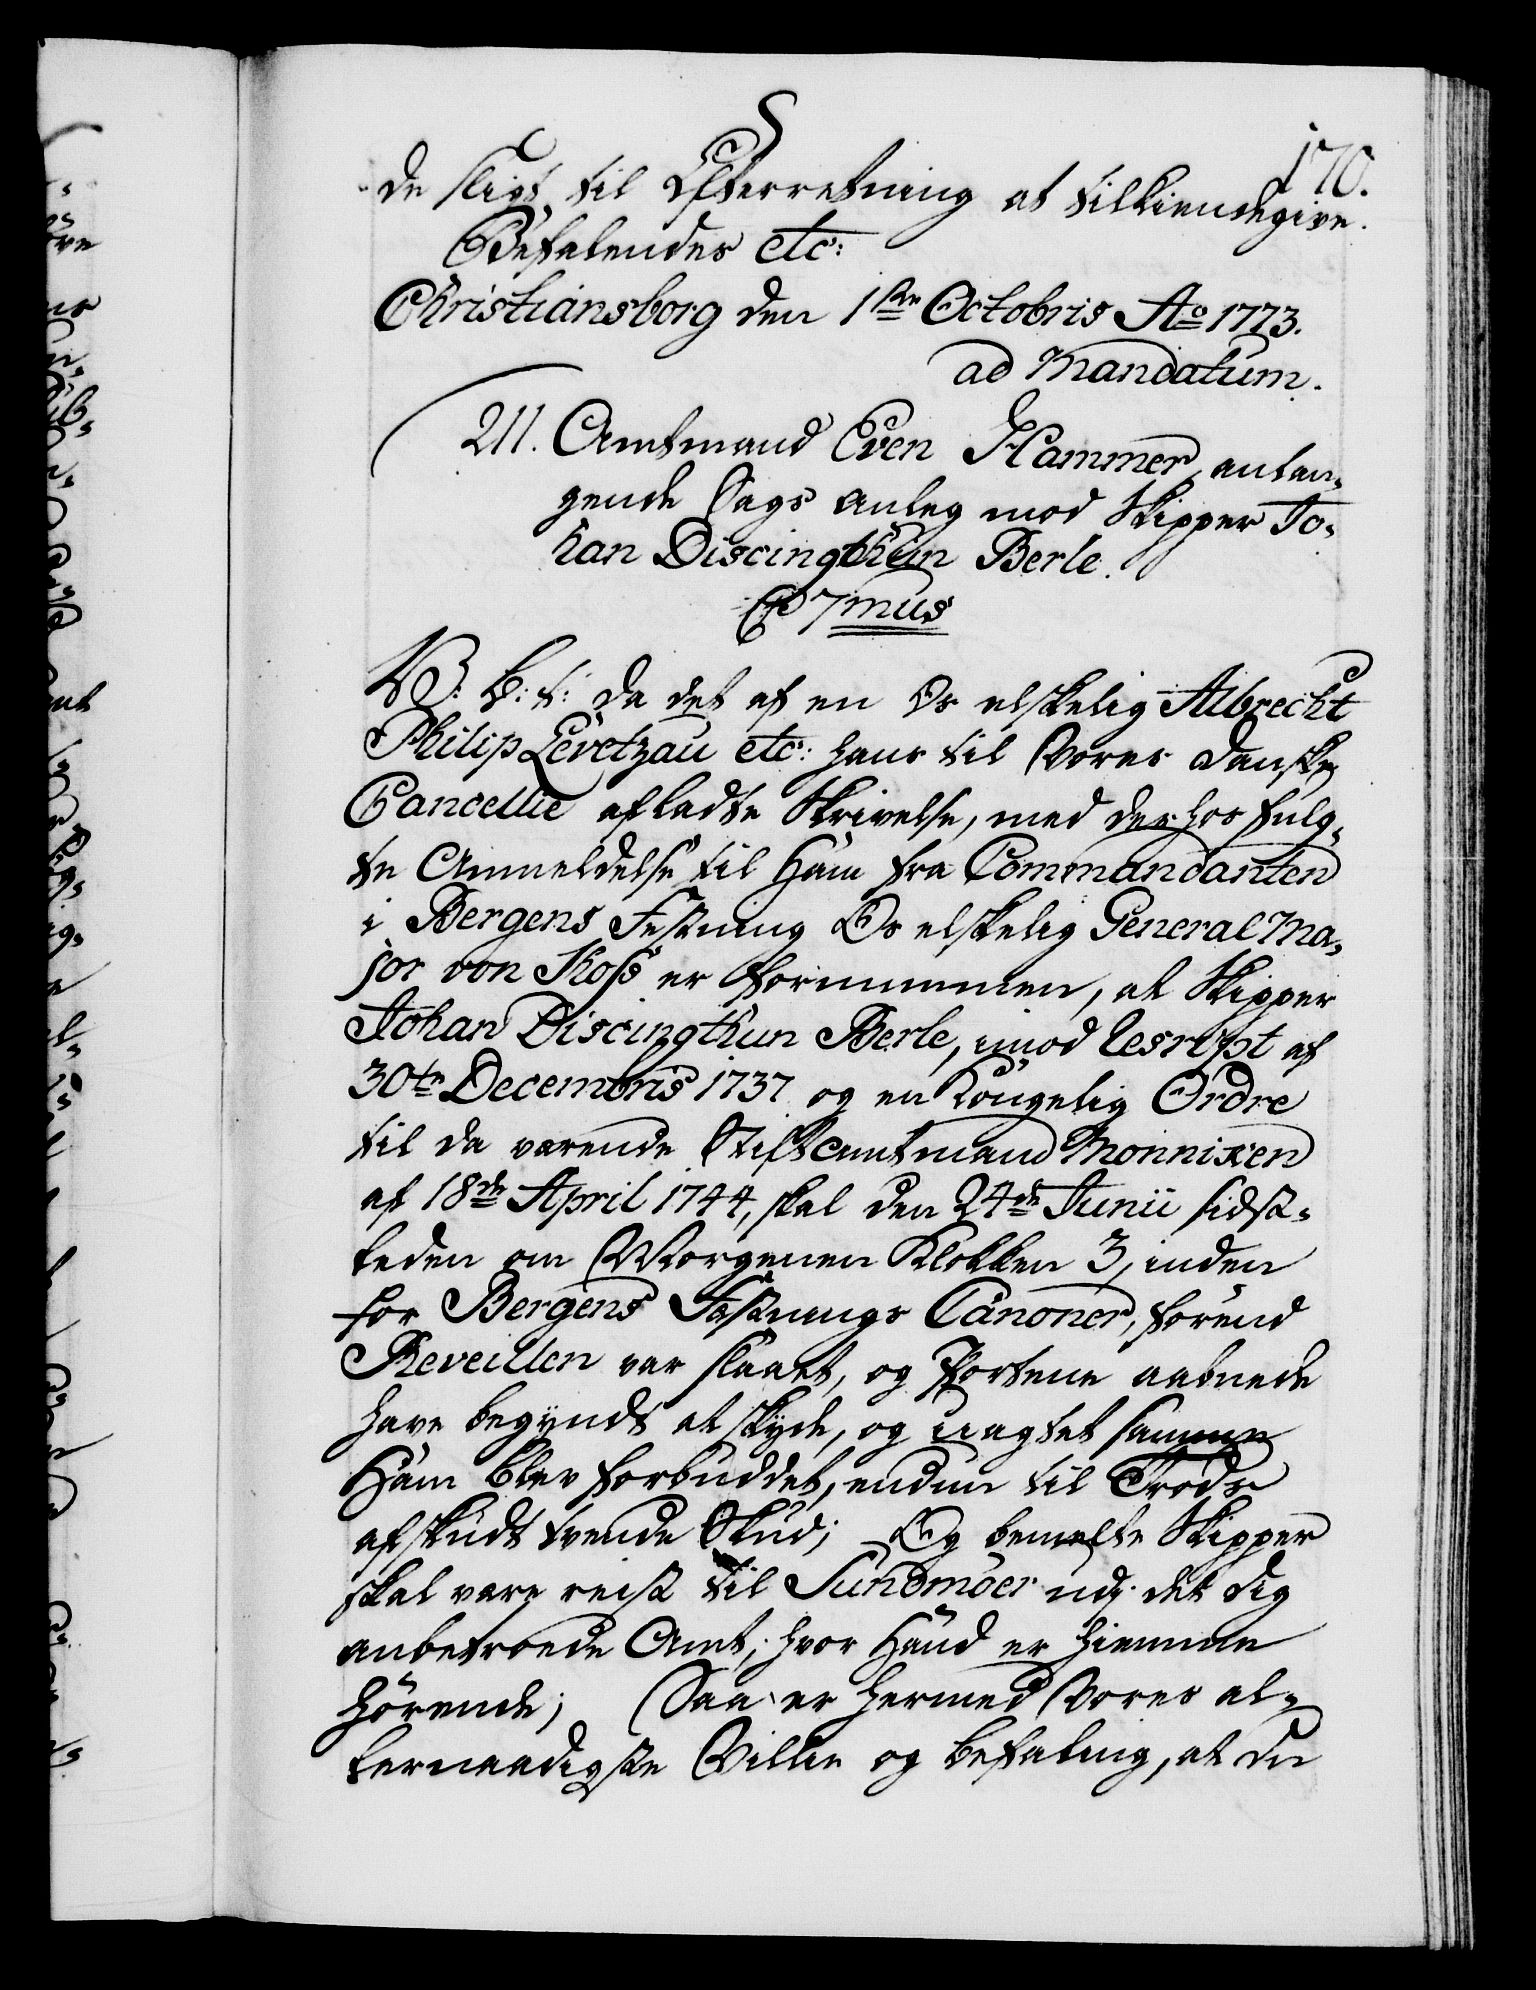 170.
de sligt til Efterretning at tilkiendegive.
Befalendes etc:
Christiansborg den 1ste Octobris Ao 1773.
ad Mandatum.
211. Amtmand Even Hammer, anlan-
gende Sags anleg mod Skipper Jo-
han Discingthun Berle.
C 7mus
V: G: t: da det af en Os elskelig Albrecht
Philip Levetzau etc: hans til Vores danske
Cancellie afladte Skrivelse, med derhos fulg-
te Anmeldelse til Ham fra Commandanten
i Bergens Festning Os elskelig General Ma-
jor von Koss er fornummen, at Skipper
Johan Discingthun Berle, imod Resript af
30te Decembris 1737 og en Kongelig Ordre
til da værende Stiftamtmand Monnixen
af 18de April 1744, skal den 24de Junii sidst-
leden om Morgenen Klokken 3, inden
for Bergens Festnings Canoner, forend
Reveillen var slaaet, og Portene aabnede
have begyndt at skyde, og uagtet samme
Ham blev forbuddet, endnu til Trods
afskudt tvende Skud; Og bemelte Skipper
skal være reist til Sundmöer udj det dig
anbetroede Amt, hvor Hand er hiemme
hörende; Saa er hermed Vores al-
lernaadigste Villie og befaling, at du